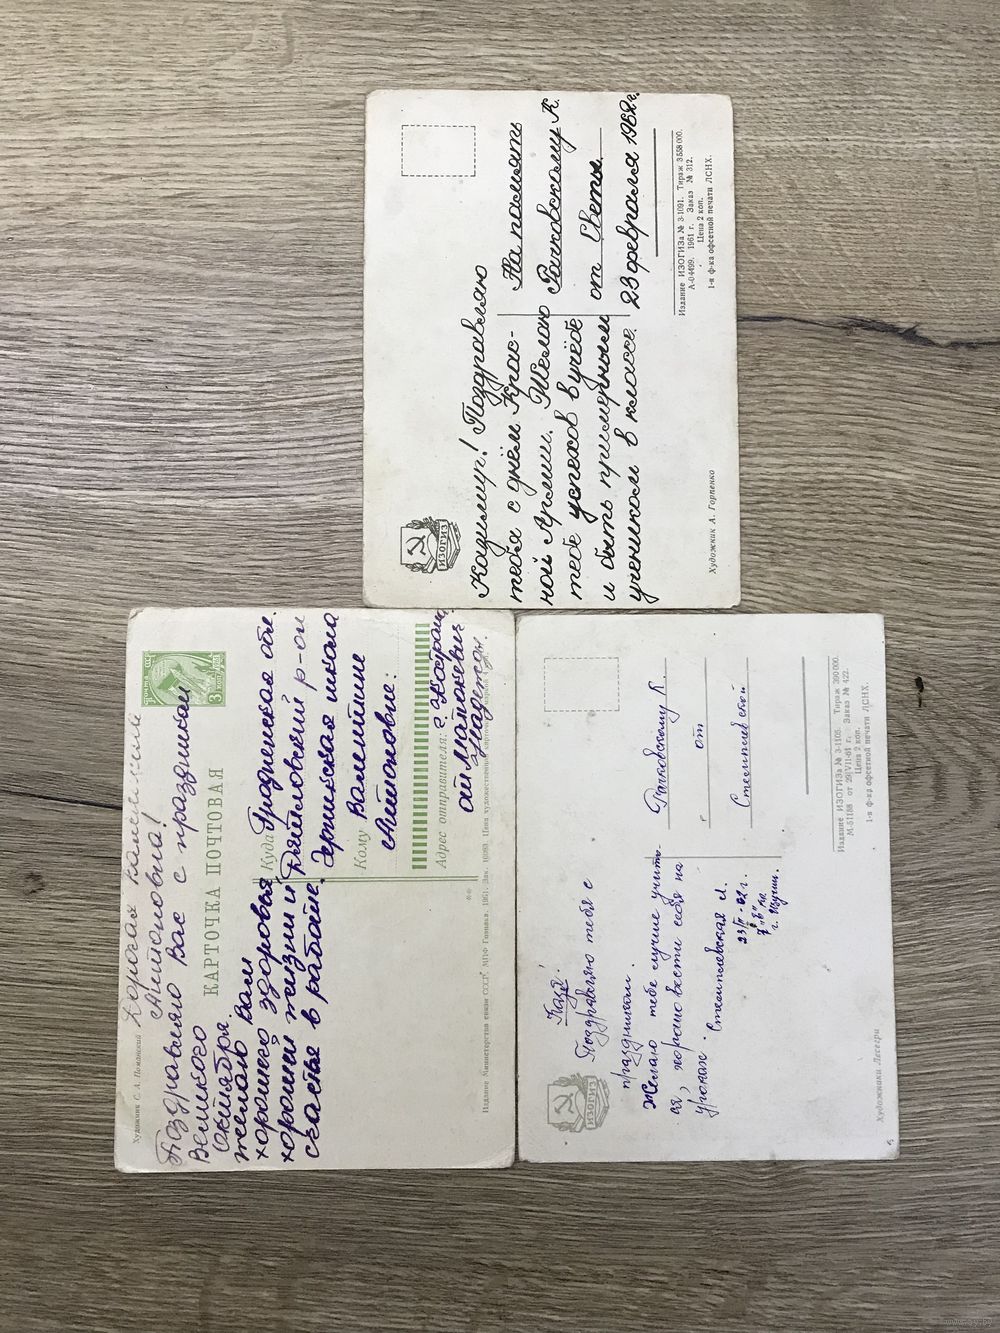 Казимир! Поздравляю
тебя с днём Крас-
ной Армии. Желаю
тебе успехов в учёбе
и быть примерным
учеником в классе.
На память
Рачковскому К.
от Светы.
23 февраля 1962 г.
ИЗОГИЗ
Художник А. Горпенко
Издание ИЗОГИЗа № 3-1091. Тираж 3 558 000.
А-04499. 1961 г. Заказ № 312.
Цена 2 коп.
1-я ф-ка офсетной печати ЛСНХ.
Художник С. А. Поманский
Дорогая
Антоновна!
Поздравляю Вас с праздником
Великого
Октября.
желаю Вам
хорошего здоровья
хорошей жизни и
счастье в работе.
ПОЧТА СССР
3 КОП
КАРТОЧКА ПОЧТОВАЯ
Куда Гродненская обл.
Дятловский р-он
школа
Кому Валентине
Антоновне:
Адрес отправителя: г.
от
Издание Министерства связи СССР. МПФ Гознака. 1961. Зак. 10093.
Казе!
Поздравляю тебя с
праздником.
Желаю тебе лучше учить-
ся, хорошо вести себя на
уроках.
23/II-62 г.
7 "в" кл.
г. Щучин.
Рачковскому К.
от
ИЗОГИЗ
Художники Лесегри
Издание ИЗОГИЗа № 3-1105. Тираж 390 000.
М-51188 от 29/VII-61 г. Заказ № 422.
Цена 2 коп.
1-я ф-ка офсетной печати ЛСНХ.
www.ay.by